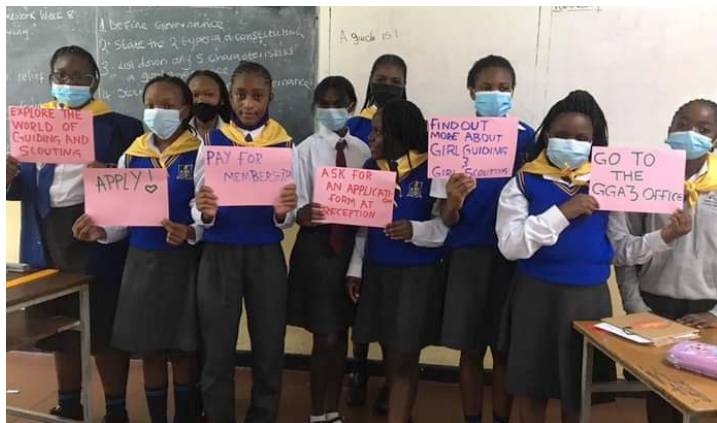 Week 8
1. Define Governance
2. State the 2 types of a constitution,
3. List down any 5 characteristics
relief
4.
A guide is?
EXPLORE THE
WORLD OF
GUIDING AND
SCOUTING
APPLY!
PAY FOR
MEMBERSHIP
ASK FOR
AN APPLICATION
FORM AT
RECEPTION
FIND OUT
MORE ABOUT
GIRL GUIDING
&
GIRL SCOUTING
GO TO
THE
GGAZ OFFICE